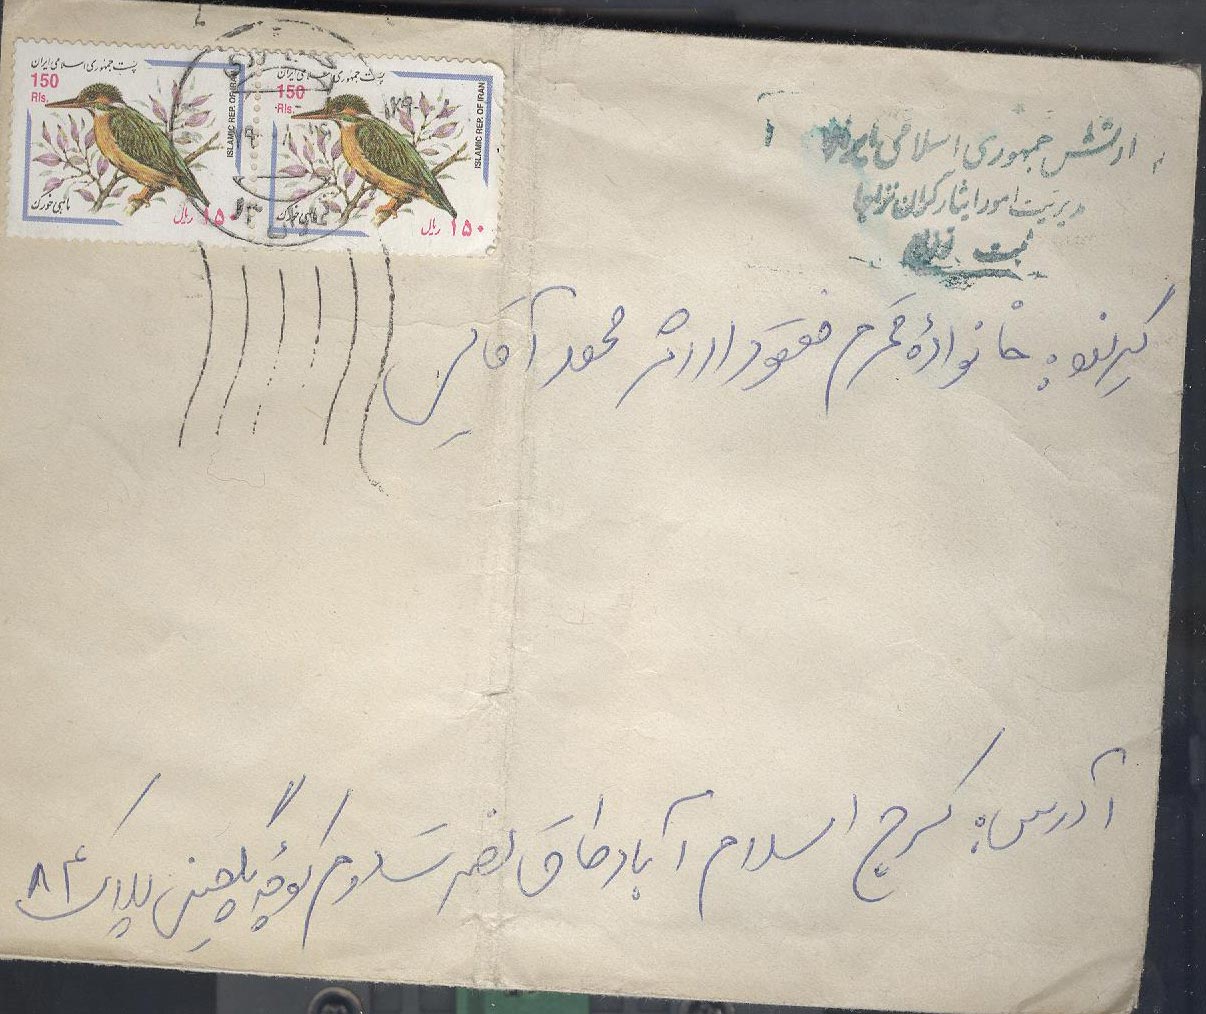 پست جمهوری اسلامی ایران
150
Rls.
ISLAMIC REP. OF IRAN
ماهی خورک
۱۵۰ ریال
پست جمهوری اسلامی ایران
150
Rls.
ISLAMIC REP. OF IRAN
ماهی خورک
۱۵۰ ریال
ارتش جمهوری اسلامی ایران
مدیریت امور ایثارگران نزاجا
گیرنده: خانوادهٔ محترم مفقود الاثر محمود آقایی
آدرس: کرج اسلام آباد طاق نصرت سوم کوچهٔ گلچین پلاک ۸۴